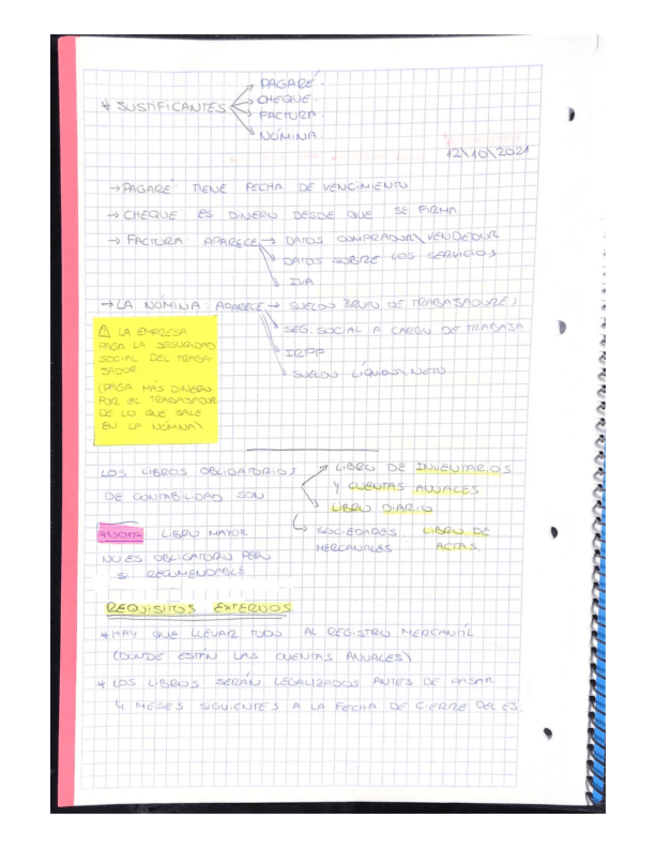 PAGARÉ.
* JUSTIFICANTES
CHEQUE.
FACTURA.
NÓMINA.
12\10\2021
→ PAGARÉ: TIENE FECHA DE VENCIMIENTO
→ CHEQUE: ES DINERO DESDE QUE SE FIRMA
→ FACTURA: APARECE → DATOS COMPRADOR\VENDEDOR
DATOS SOBRE LOS SERVICIOS
IVA
→ LA NOMINA: APARECE → SUELDO BRUTO DE TRABAJADORES
SEG. SOCIAL A CARGO DE TRABAJA
IRPF
SUELDO LÍQUIDO\NETO
⚠ LA EMPRESA
PAGA LA SEGURIDAD
SOCIAL DEL TRABA-
JADOR
(PAGA MÁS DINERO
POR EL TRABAJADOR
DE LO QUE SALE
EN LA NÓMINA)
LOS LIBROS OBLIGATORIOS
DE CONTABILIDAD SON
LIBRO DE INVENTARIOS
Y CUENTAS ANUALES
LIBRO DIARIO
SOCIEDADES MERCANTILES
LIBRO DE ACTAS
*NOTA LIBRO MAYOR
NO ES OBLIGATORIO PERO
SI RECOMENDABLE
REQUISITOS EXTERNOS
* HAY QUE LLEVAR TODO AL REGISTRO MERCANTIL
(DONDE ESTÁN LAS CUENTAS ANUALES)
* LOS LIBROS SERÁN LEGALIZADOS ANTES DE PASAR
4 MESES SIGUIENTES A LA FECHA DE CIERRE DEL EJ.